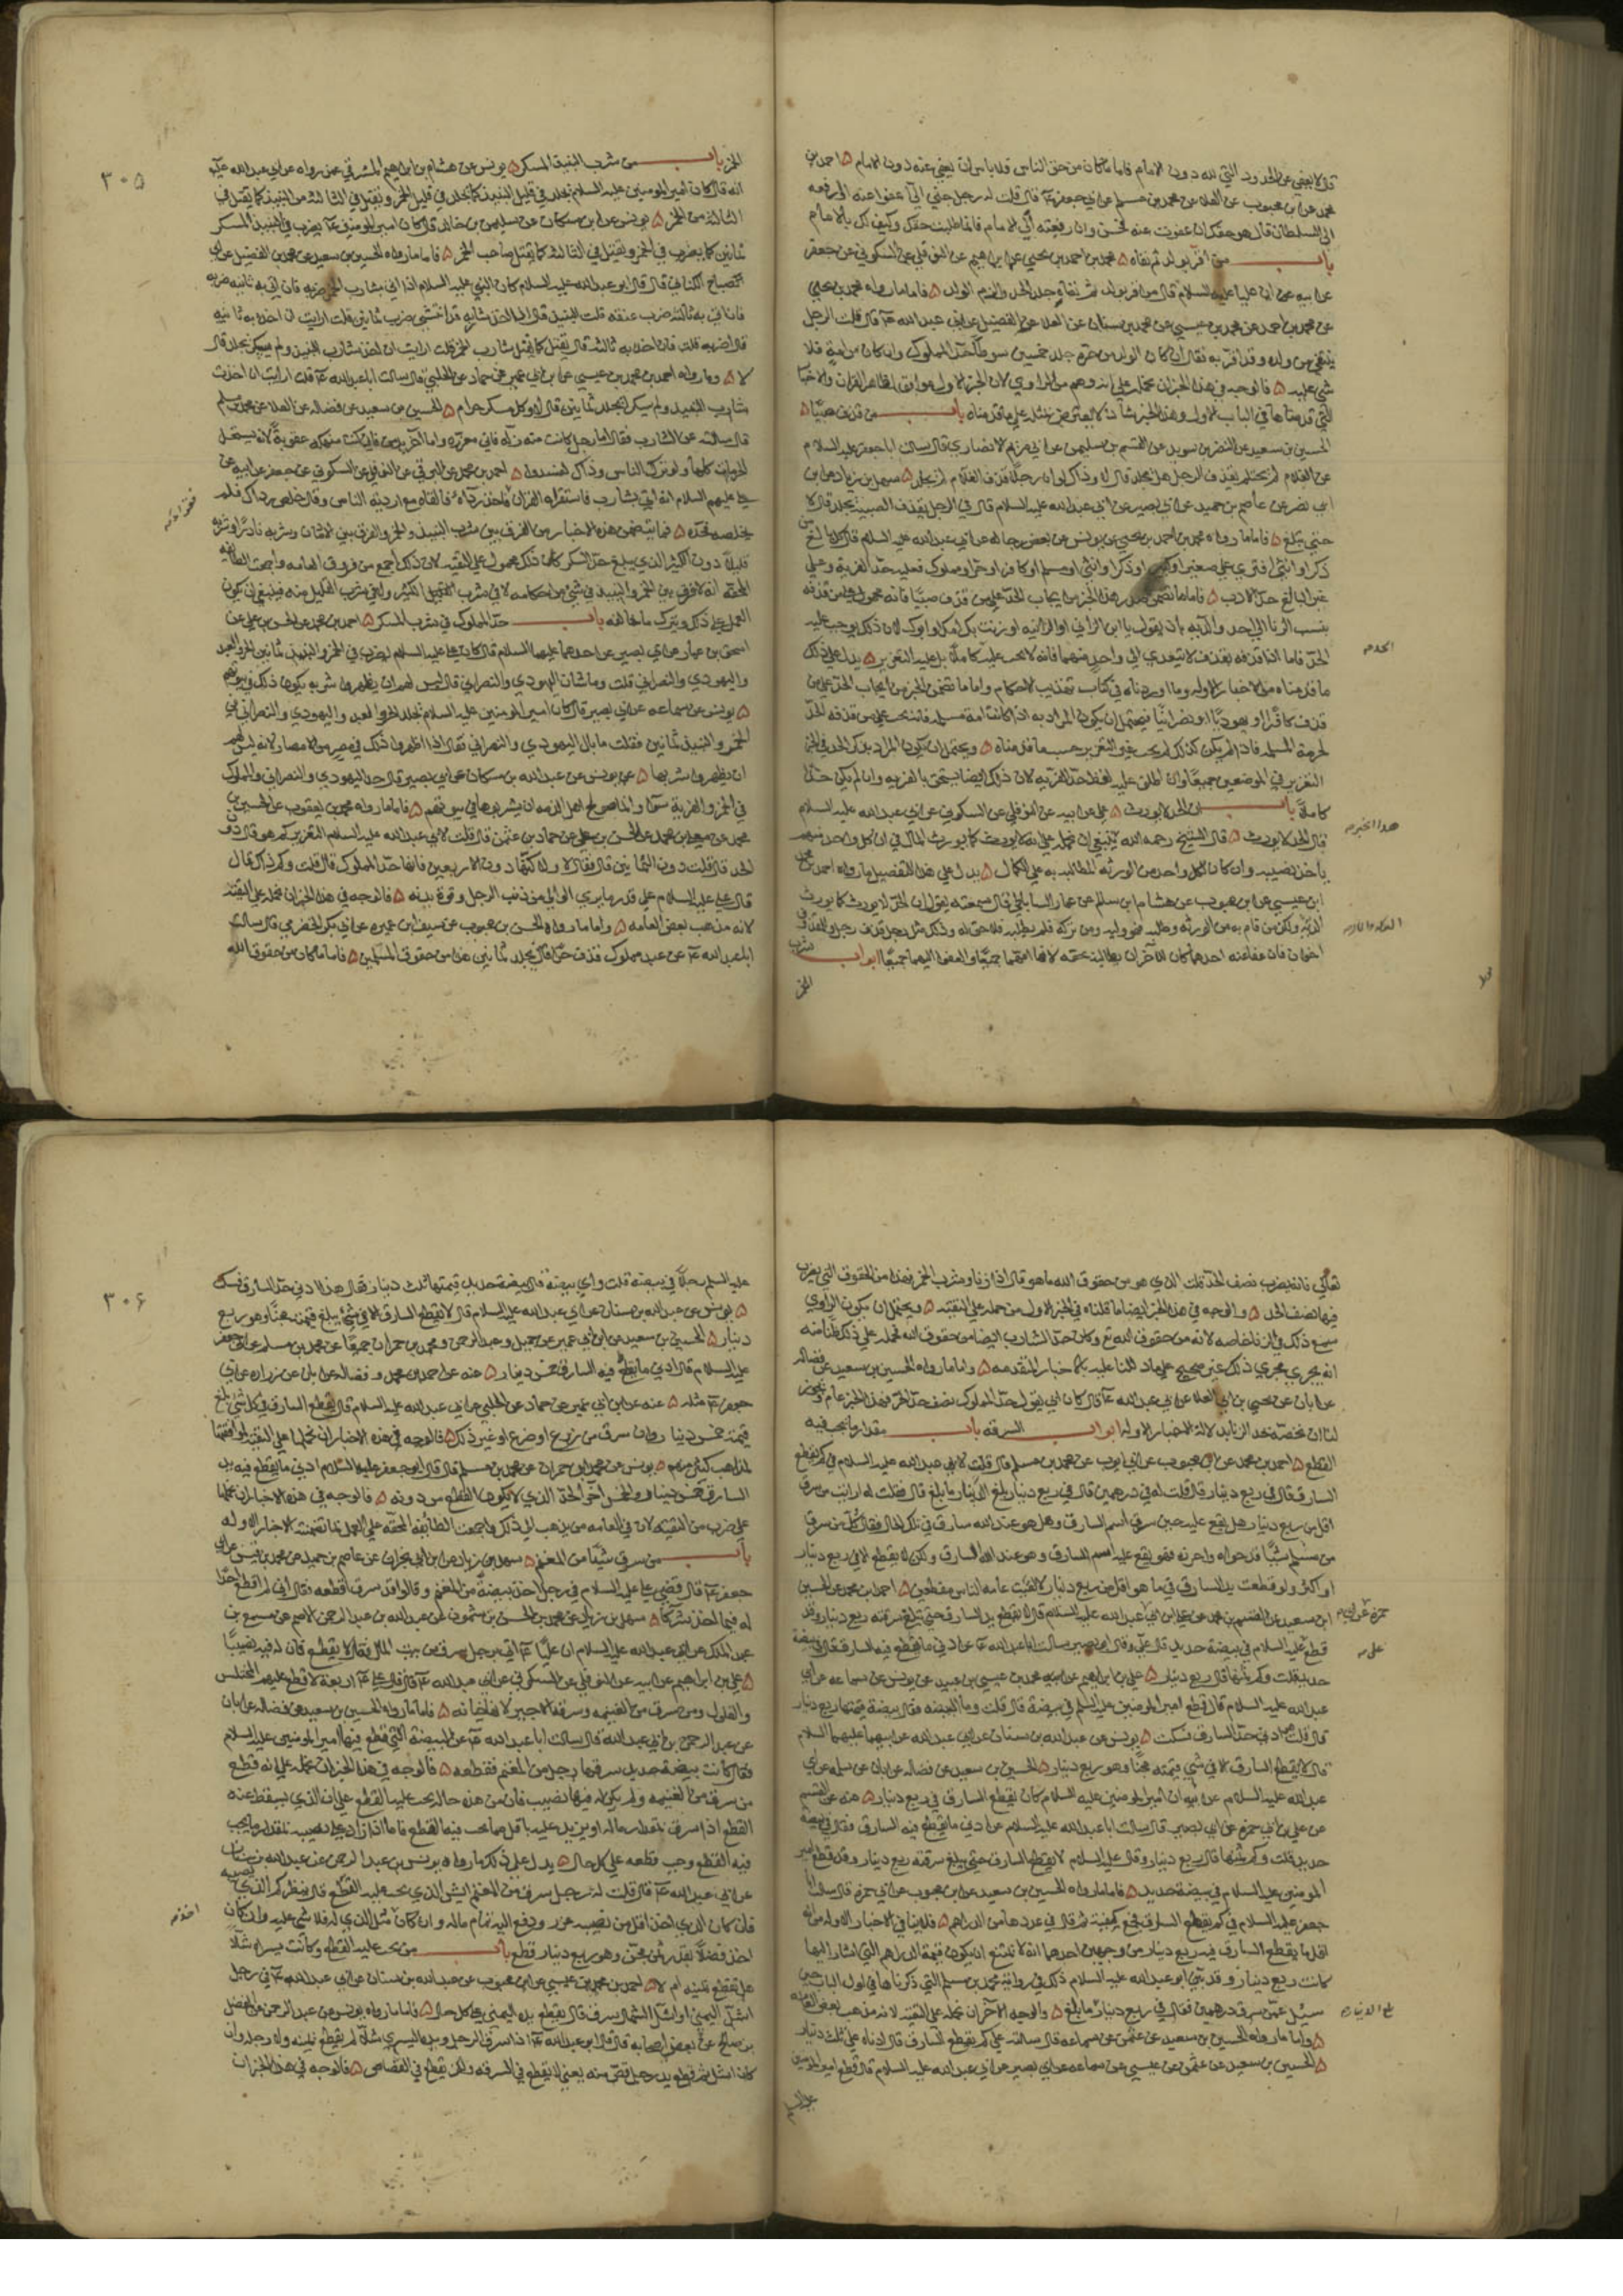 قال لا يعفى عن الحدود التي لله دون الامام فاما ما كان من حق الناس فلا باس ان يعفى عنه دون الامام ۵ احمد بن
محمد عن ابن محبوب عن العلا عن محمد بن مسلم عن ابي جعفر ع قال قلت له رجل جنى اليّ اعفوا عنه او ارفعه
الى السلطان قال هو حقك ان عفوت عنه فحسن وان رفعته الى الامام فانما طلبت حقك وكيف لك بالامام
باب من اقر بولد ثم نفاه ۵ محمد بن احمد بن يحيى عن ابراهيم عن النوفلي عن السكوني عن جعفر
عن ابيه عن ان عليا عليه السلام قال من اقر بولد ثم نفاه جلد الحد والزم الولد ۵ فاما ما رواه محمد بن يحيى
عن محمد بن احمد عن محمد بن عيسى عن محمد بن سنان عن العلا عن الفضيل عن ابي عبد الله ع قال قلت الرجل
ينتفي من ولده وقد اقر به فقال ان كان الولد من حرة جلد خمسين سوطا حد المملوك وان كان من امة فلا
شي عليه ۵ فالوجه في هذا الخبر ان نحمله على انه وهم من الراوي لان الخبر الاول موافق لظاهر القران والاخبار
التي قدمناها في الباب الاول وهذا الخبر شاذ لا يعترض بمثله على ما قدمناه باب من قذف صبيا ۵
الحسين بن سعيد عن النضر بن سويد عن القسم بن سليمن عن ابي مريم الانصاري قال سالت ابا جعفر عليه السلام
عن الغلام لم يحتلم يقذف الرجل هل يجلد قال لا وذاك لو ان رجلا قذف الغلام لم يجلد ۵ سهل بن زياد عن ابن
ابي نصر عن عاصم بن حميد عن ابي بصير عن ابي عبد الله عليه السلام قال في الرجل يقذف الصبية يجلد قال لا
حتى تبلغ ۵ فاما ما رواه محمد بن احمد بن يحيى عن يونس عن بعض رجاله عن ابي عبد الله عليه السلام قال كل بالغ من
ذكر او انثى افترى على صغير او كبير او ذكر او انثى او مسلم او كافر او حر او مملوك فعليه حد الفرية وعلى
غير البالغ حد الادب ۵ فاما ما تضمن صدر هذا الخبر من ايجاب الحد على من قذف صبيا فانه محمول على من قذفه
بنسب الزنا الى احد والديه بان يقول يا ابن الزاني او الزانية او زنت بك امك او ابوك لان ذلك يوجب عليه
الحد فاما اذا قذفه بقذف لا يتعدى الى واحد منهما فانه لا يجب عليه الحد كاملا بل عليه التعزير ۵ يدل على ذلك
ما قدمناه من الاخبار الاوله وما اوردناه في كتاب تهذيب الاحكام واما ما تضمن الخبر من ايجاب الحد على من
قذف كافرا او يهوديا او نصرانيا فيحتمل ان يكون المراد به اذا كانت امه مسلمة فانه يجب على من قذفه الحد
لحرمة المسلمة فاذا لم يكن كذلك لم يجب غير التعزير حسب ما قدمناه ۵ ويحتمل ان يكون المراد بذكر الحد في الخبر
التعزير في الموضعين جميعا وان اطلق عليه لفظ حد الفرية لان ذلك ايضا يستحق بالفرية وان لم يكن حدا
كاملا باب ان الحد لا يورث ۵ علي عن ابيه عن النوفلي عن السكوني عن ابي عبد الله عليه السلام
قال الحد لا يورث ۵ قال الشيخ رحمه الله ينبغي ان نحمله على انه لا يورث كما يورث المال في ان كل واحد منهم
ياخذ نصيبه وان كان لكل واحد من الورثه المطالبه به على الكمال ۵ يدل على هذا التفصيل ما رواه احمد بن محمد
ابن عيسى عن ابن محبوب عن هشام ابن سالم عن عمار الساباطي قال سمعته يقول ان الحد لا يورث كما يورث
الدية ولكن من قام به من الورثه وطلبه فهو وليه ومن تركه فلم يطلبه فلا حق له وذلك مثل رجل قذف رجلا وللمقذوف
اخوان فان عفا عنه احدهما كان للآخر ان يطالبه بحقه لانها امهما جميعا والعفو اليهما جميعا ابواب شرب
الخمر
الخمر باب من شرب النبيذ المسكر ۵ يونس عن هشام بن ابراهيم المشرقي عمن رواه عن ابي عبد الله عليه
انه قال كان امير المومنين عليه السلام يجلد في قليل النبيذ كما يجلد في قليل الخمر ويقتل في الثالثة من النبيذ كما يقتل في
الثالثة من الخمر ۵ يونس عن ابن مسكان عن سليمن بن خالد قال كان امير المومنين ع يضرب في النبيذ المسكر
ثمانين كما يضرب في الخمر ويقتل في الثالثة كما يقتل صاحب الخمر ۵ فاما ما رواه الحسين بن سعيد عن محمد بن الفضيل عن ابي
الصباح الكناني قال قال ابو عبد الله عليه السلام كان النبي عليه السلام اذا اتي بشارب الخمر ضربه فان اتي به ثانيه ضربه
فان اتي به ثالثة ضرب عنقه قلت النبيذ قال اذا اخذ شاربه قد انتشى ضرب ثمانين قلت ارايت ان اخذ به ثانية
قال اضربه قلت فان اخذ به ثالثة قال يقتل كما يقتل شارب الخمر قلت ارايت ان اخذ شارب النبيذ ولم يسكر يجلد قال
لا ۵ وما رواه احمد بن محمد بن عيسى عن ابن ابي عمير عن حماد عن الحلبي قال سالت ابا عبد الله ع قلت ارايت ان اخذت
شارب النبيذ ولم يسكر ايجلد ثمانين قال لا وكل مسكر حرام ۵ الحسين بن سعيد عن فضالة عن العلا عن محمد بن مسلم
قال سالته عن الشارب فقال اما رجل كانت منه زلة فاني معزره واما آخر يدمن فاني كنت منهكه عقوبة لانه يستحل
الحرمات كلها ولو ترك الناس وذاك لفسدوا ۵ احمد بن محمد عن البرقي عن النوفلي عن السكوني عن جعفر عن ابيه عن
علي عليهم السلام انه اتي بشارب فاستقراه القران فاخذ رداه فالقاه مع اردية الناس وقال خلص رداك فلم
يخلصه فحده ۵ فما يتضمن هذه الاخبار من الفرق بين شرب النبيذ والخمر والفرق بين الادمان وشربه نادرا وشرب
قليلا دون الكثير الذي يبلغ حد السكر كان ذلك محمول على التقيه لان ذلك اجمع من فروق العامه واجمعت الطائفه
المحقه انه لا فرق بين الخمر والنبيذ في شي من احكامه لا في شرب القليل الكثير ولا في شرب القليل منه فينبغي ان يكون
العمل على ذلك ويترك ما خالفه باب حد المملوك في شرب المسكر ۵ احمد بن محمد عن الحسن بن علي عن
اسحق بن عمار عن ابي بصير عن احدهما عليهما السلام قال كان علي عليه السلام يضرب في الخمر والنبيذ ثمانين الحر والعبد
واليهودي والنصراني قلت وما شان اليهودي والنصراني قال ليس لهم ان يظهروا شربه يكون ذلك في بيوتهم
۵ يونس عن سماعه عن ابي بصير قال كان امير المومنين عليه السلام يجلد الحر والعبد واليهودي والنصراني في
الخمر والنبيذ ثمانين فقلت ما بال اليهودي والنصراني فقال اذا اظهروا ذلك في مصر من الامصار لانه ليس لهم
ان يظهروا شربها ۵ عن يونس عن عبد الله بن مسكان عن ابي بصير قال حد اليهودي والنصراني والمملوك
في الخمر والفرية سوا وانما صولح اهل الذمه ان يشربوها في بيوتهم ۵ فاما ما رواه محمد بن يعقوب عن الحسين بن
محمد عن معلى بن محمد عن الحسن بن علي عن حماد بن عثمن قال قلت لابي عبد الله عليه السلام التعزير كم هو قال دون
الحد قال قلت دون الثمانين قال فقال لا ولكنها دون الاربعين فانها حد المملوك قال قلت وكم ذاك قال
قال علي عليه السلام على قدر ما يرى الوالي من ذنب الرجل وقوة بدنه ۵ فالوجه في هذا الخبر ان نحمله على التقية
لانه مذهب بعض العامه ۵ واما ما رواه الحسن بن محبوب عن سيف ابن عميره عن ابي بكر الحضرمي قال سالت
ابا عبد الله ع عن عبد مملوك قذف حرا قال يجلد ثمانين هذا من حقوق المسلمين ۵ فاما ما كان من حقوق الله
٣٠٥
تعالى فانه يضرب نصف الحد قلت الذي هو من حقوق الله ما هو قال اذا زنا او شرب الخمر فهذا من الحقوق التي يضرب
فيها نصف الحد ۵ والوجه في هذا الخبر ايضا ما قلناه في الخبر الاول من حمله على التقية ۵ ويحتمل ان يكون الراوي
سمع ذلك في الزنا خاصه لانه من حقوق الله تع وكان حد الشارب ايضا من حقوق الله فحمله على ذلك ظنا منه
انه يجري مجرى ذلك غير صحيح على ما دللنا عليه بالاخبار المتقدمه ۵ واما ما رواه الحسين بن سعيد عن فضاله
عن ابان عن يحيى بن ابي العلا عن ابي عبد الله ع قال كان ابي يقول حد المملوك نصف حد الحر فهذا الخبر عام ويجوز
لنا ان نخصه بحد الزنا بدلالة الاخبار الاوله ابواب السرقه باب مقدار ما يجب فيه
القطع ۵ احمد بن محمد عن ابن محبوب عن ابي ايوب عن محمد بن مسلم قال قلت لابي عبد الله عليه السلام في كم يقطع
السارق قال في ربع دينار قال قلت له في درهمين قال في ربع دينار بلغ الدينار ما بلغ قال فقلت له ارايت من سرق
اقل من ربع دينار هل يقع عليه حين سرق اسم السارق وهل هو عند الله سارق في تلك الحال فقال كل من سرق
من مسلم شيئا قد حواه واحرزه فهو يقع عليه اسم السارق وهو عند الله السارق ولكن لا يقطع الا في ربع دينار
او اكثر ولو قطعت يد السارق في ما هو اقل من ربع دينار لالفيت عامه الناس مقطعين ۵ احمد بن محمد عن الحسين
ابن سعيد عن القسم بن محمد عن علي عن ابي عبد الله عليه السلام قال لا يقطع يد السارق حتى تبلغ سرقته ربع دينار وقد
قطع علي عليه السلام في بيضة حديد قال علي وقال ابي بصير سالت ابا عبد الله ع عن ادنى ما يقطع فيه السارق فقال في بيضة
حديد قلت وكم ثمنها قال ربع دينار ۵ علي بن ابراهيم عن ابيه محمد بن عيسى بن عبيد عن يونس عن سماعه عن ابي
عبد الله عليه السلام قال قطع امير المومنين عليه السلم في بيضة قال قلت وما البيضه فقال بيضة قيمتها ربع دينار
قال قلت هو ادنى حد السارق فسكت ۵ يونس عن عبد الله بن سنان عن ابي عبد الله عن ابيهما عليهما السلام
قال لا يقطع السارق الا في شي قيمته مجنا وهو ربع دينار ۵ الحسين بن سعيد عن فضاله عن ابان عن سلمه عن ابي
عبد الله عليه السلام عن ابيه ان امير المومنين عليه السلام كان يقطع السارق في ربع دينار ۵ عنه عن القسم
عن علي بن ابي حمزه عن ابي بصير قال سالت ابا عبد الله عليه السلام عن ادنى ما يقطع فيه السارق فقال في بيضة
حديد قلت وكم ثمنها قال ربع دينار وقال عليه السلام لا يقطع السارق حتى يبلغ سرقته ربع دينار وقد قطع امير
المومنين عليه السلام في بيضة حديد ۵ فاما ما رواه الحسين بن سعيد عن ابن محبوب عن ابي حمزه قال سالت ابا
جعفر عليه السلام في كم يقطع السارق فجمع كفيه ثم قال في عددها من الدراهم ۵ فلا ينافي الاخبار الاوله من انه
اقل ما يقطع السارق فيه ربع دينار من وجهين احدهما انه لا يمتنع ان يكون قيمة الدراهم التي اشار اليها
كانت ربع دينار وقد بين ابو عبد الله عليه السلام ذلك في رواية محمد بن مسلم التي ذكرناها في اول الباب حين
سئل عمن سرق درهمين فقال في ربع دينار ما بلغ ۵ والوجه الآخر ان نحمله على التقيه لانه مذهب بعض العامه
۵ واما ما رواه الحسين بن سعيد عن عثمن عن سماعه قال سالته على كم يقطع السارق قال ادناه على ثلث دينار
۵ الحسين بن سعيد عن عثمن بن عيسى عن سماعه عن ابي بصير عن ابي عبد الله عليه السلام قال قطع امير المومنين
عليه السلم
عليه السلم رجلا في بيضة قلت واي بيضة قال بيضة حديد قيمتها ثلث دينار فقال هذا ادنى حد السارق فسكت
۵ يونس عن عبد الله بن سنان عن ابي عبد الله عليه السلام قال لا يقطع السارق الا في شي يبلغ قيمته مجنا وهو ربع
دينار ۵ الحسين بن سعيد عن ابن ابي عمير عن جميل وعبد الرحمن ومحمد بن حمران جميعا عن محمد بن مسلم عن ابي جعفر
عليه السلام قال ادنى ما يقطع فيه السارق خمس دينار ۵ عنه عن احمد بن محمد وفضاله عن ابان عن زراره عن ابي
جعفر ع مثله ۵ عنه عن ابن ابي عمير عن حماد عن الحلبي عن ابي عبد الله عليه السلام قال يقطع السارق في كل شي بلغ
قيمته خمس دينار وان سرق من زرع او ضرع او غير ذلك ۵ فالوجه في هذه الاخبار ان نحملها على التقيه لموافقتها
لمذاهب كثير منهم ۵ يونس عن محمد بن حمران عن محمد بن مسلم قال قال ابو جعفر عليه السلام ادنى ما يقطع فيه يد
السارق خمس دينار والخمس آخر الحد الذي لا يكون القطع من دونه ۵ فالوجه في هذه الاخبار ان نحملها
على ضرب من التقيه لان في العامه من يذهب الى ذلك واجمعت الطائفه المحقه على العمل بما تضمنته الاخبار الاوله
باب من سرق شيئا من المغنم ۵ سهل بن زياد عن ابن ابي نجران عن عاصم بن حميد عن محمد بن قيس عن ابي
جعفر ع قال قضى علي عليه السلام في رجل اخذ بيضة من المغنم وقالوا قد سرق اقطعه فقال اني لم اقطع احدا
له فيما اخذ شركا ۵ سهل بن زياد عن محمد بن الحسن بن شمون عن عبد الله بن عبد الرحمن الاصم عن مسمع بن
عبد الملك عن ابي عبد الله عليه السلام ان عليا ع اتي برجل سرق من بيت المال فقال لا يقطع فان له فيه نصيبا
۵ علي بن ابراهيم عن ابيه عن النوفلي عن السكوني عن ابي عبد الله ع قال قال علي ع اربعة لا قطع عليهم المختلس
والغلول ومن سرق من الغنيمه وسرقة الاجير لانها خيانه ۵ فاما ما رواه الحسين بن سعيد عن فضاله عن ابان
عن عبد الرحمن بن ابي عبد الله قال سالت ابا عبد الله ع عن البيضة التي قطع فيها امير المومنين عليه السلام
فقال كانت بيضة حديد سرقها رجل من المغنم فقطعه ۵ فالوجه في هذا الخبر ان نحمله على انه قطع
من سرق من الغنيمه ولم يكن له فيها نصيب فان من هذه حاله يجب عليه القطع على ان الذي يسقط عنه
القطع اذا سرق بمقدار ماله او يزيد عليه باقل مما يجب فيه القطع فاما اذا زاد على نصيبه بمقدار ما يجب
فيه القطع وجب قطعه على كل حال ۵ يدل على ذلك ما رواه يونس بن عبد الرحمن عن عبد الله بن سنان
عن ابي عبد الله ع قال قلت له رجل سرق من المغنم الشي الذي يجب عليه القطع قال ينظر كم الذي نصيبه
فان كان الذي اخذ اقل من نصيبه عزر ودفع اليه تمام ماله وان كان مثل الذي له فلا شي عليه وان كان
اخذ فضلا بقدر ثمن مجن وهو ربع دينار قطع باب من يجب عليه القطع وكانت يسراه شلا
هل يقطع يمينه ام لا ۵ احمد بن محمد بن عيسى عن ابن محبوب عن عبد الله بن سنان عن ابي عبد الله ع في رجل
اشل اليمنى او اشل الشمال سرق قال يقطع يده اليمنى على كل حال ۵ فاما ما رواه يونس عن عبد الرحمن عن المفضل
بن صالح عن بعض اصحابه قال قال ابو عبد الله ع اذا سرق الرجل ويده اليسرى شلا لم يقطع يمينه ولا رجله وان
كان اشل ثم قطع يد رجل قص منه يعني لا يقطع في السرقه ولكن يقطع في القصاص ۵ فالوجه في هذا الخبر ان
٣٠۶